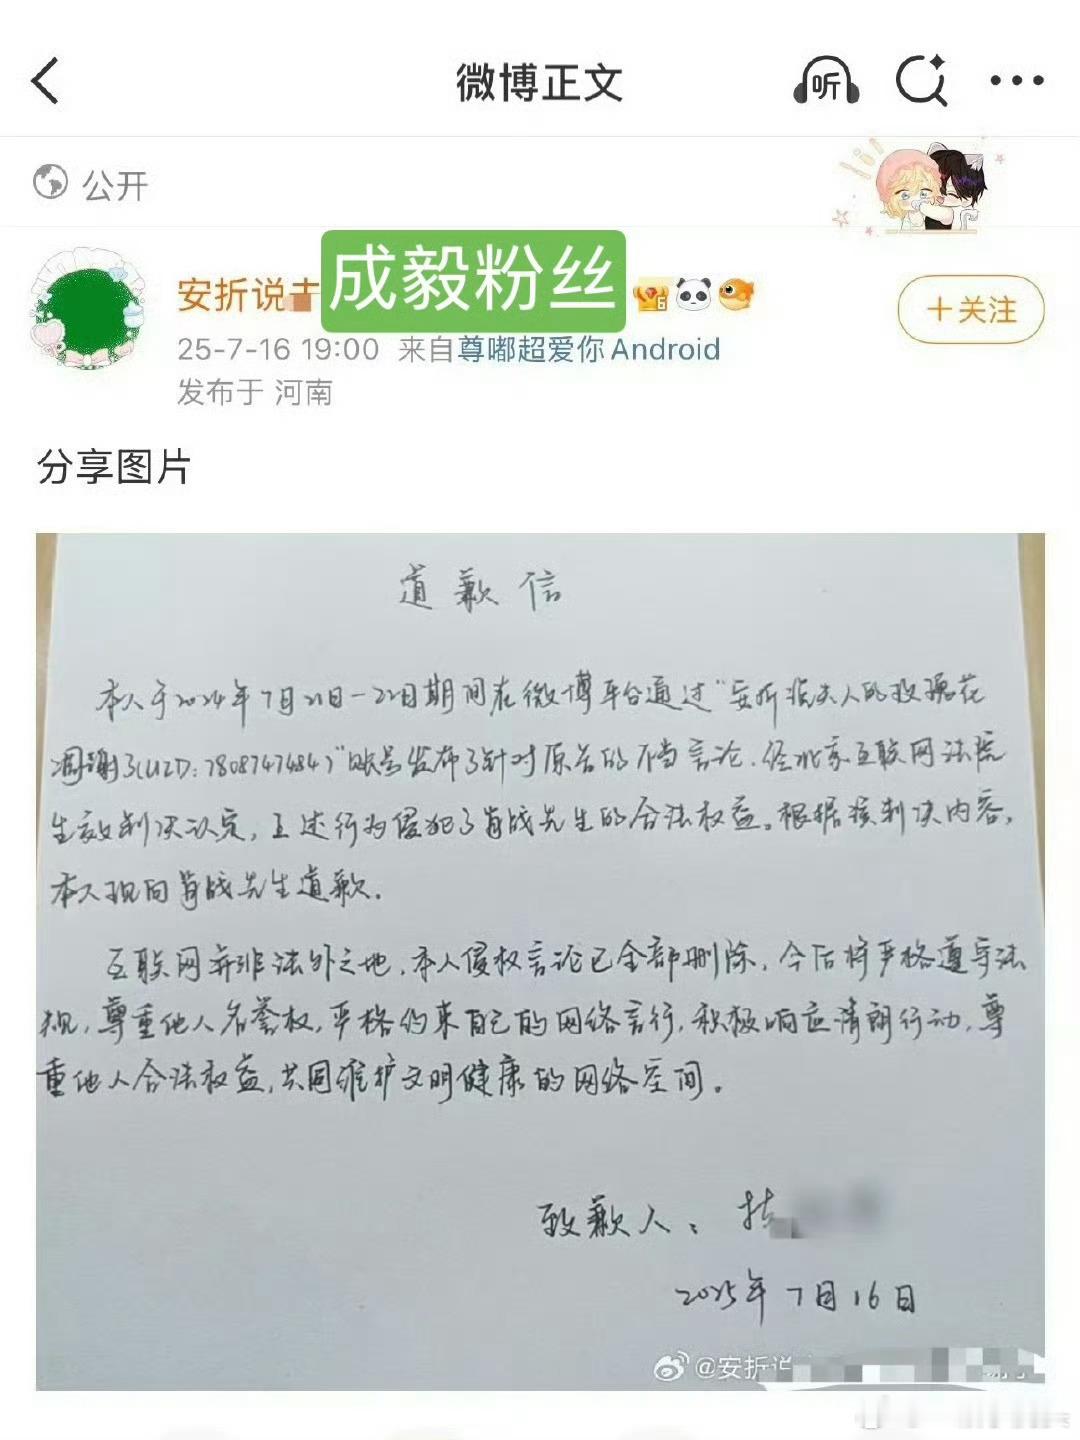 微博正文
听
公开
安折说夫
成毅粉丝
6
+关注
25-7-16 19:00 来自尊嘟超爱你Android
发布于 河南
分享图片
道歉信
本人于2024年7月21日-22日期间在微博平台通过"安折说夫人的玫瑰花
凋谢了(UID:7808747484)"账号发布了针对原告的不当言论,经北京互联网法院
生效判决认定,上述行为侵犯了肖战先生的合法权益。根据该判决内容,
本人现向肖战先生道歉.
互联网并非法外之地,本人侵权言论已全部删除,今后将严格遵守法
规,尊重他人名誉权,严格约束自己的网络言行,积极响应清朗行动,尊
重他人合法权益,共同维护文明健康的网络空间。
致歉人:
2025年7月16日
@安折说